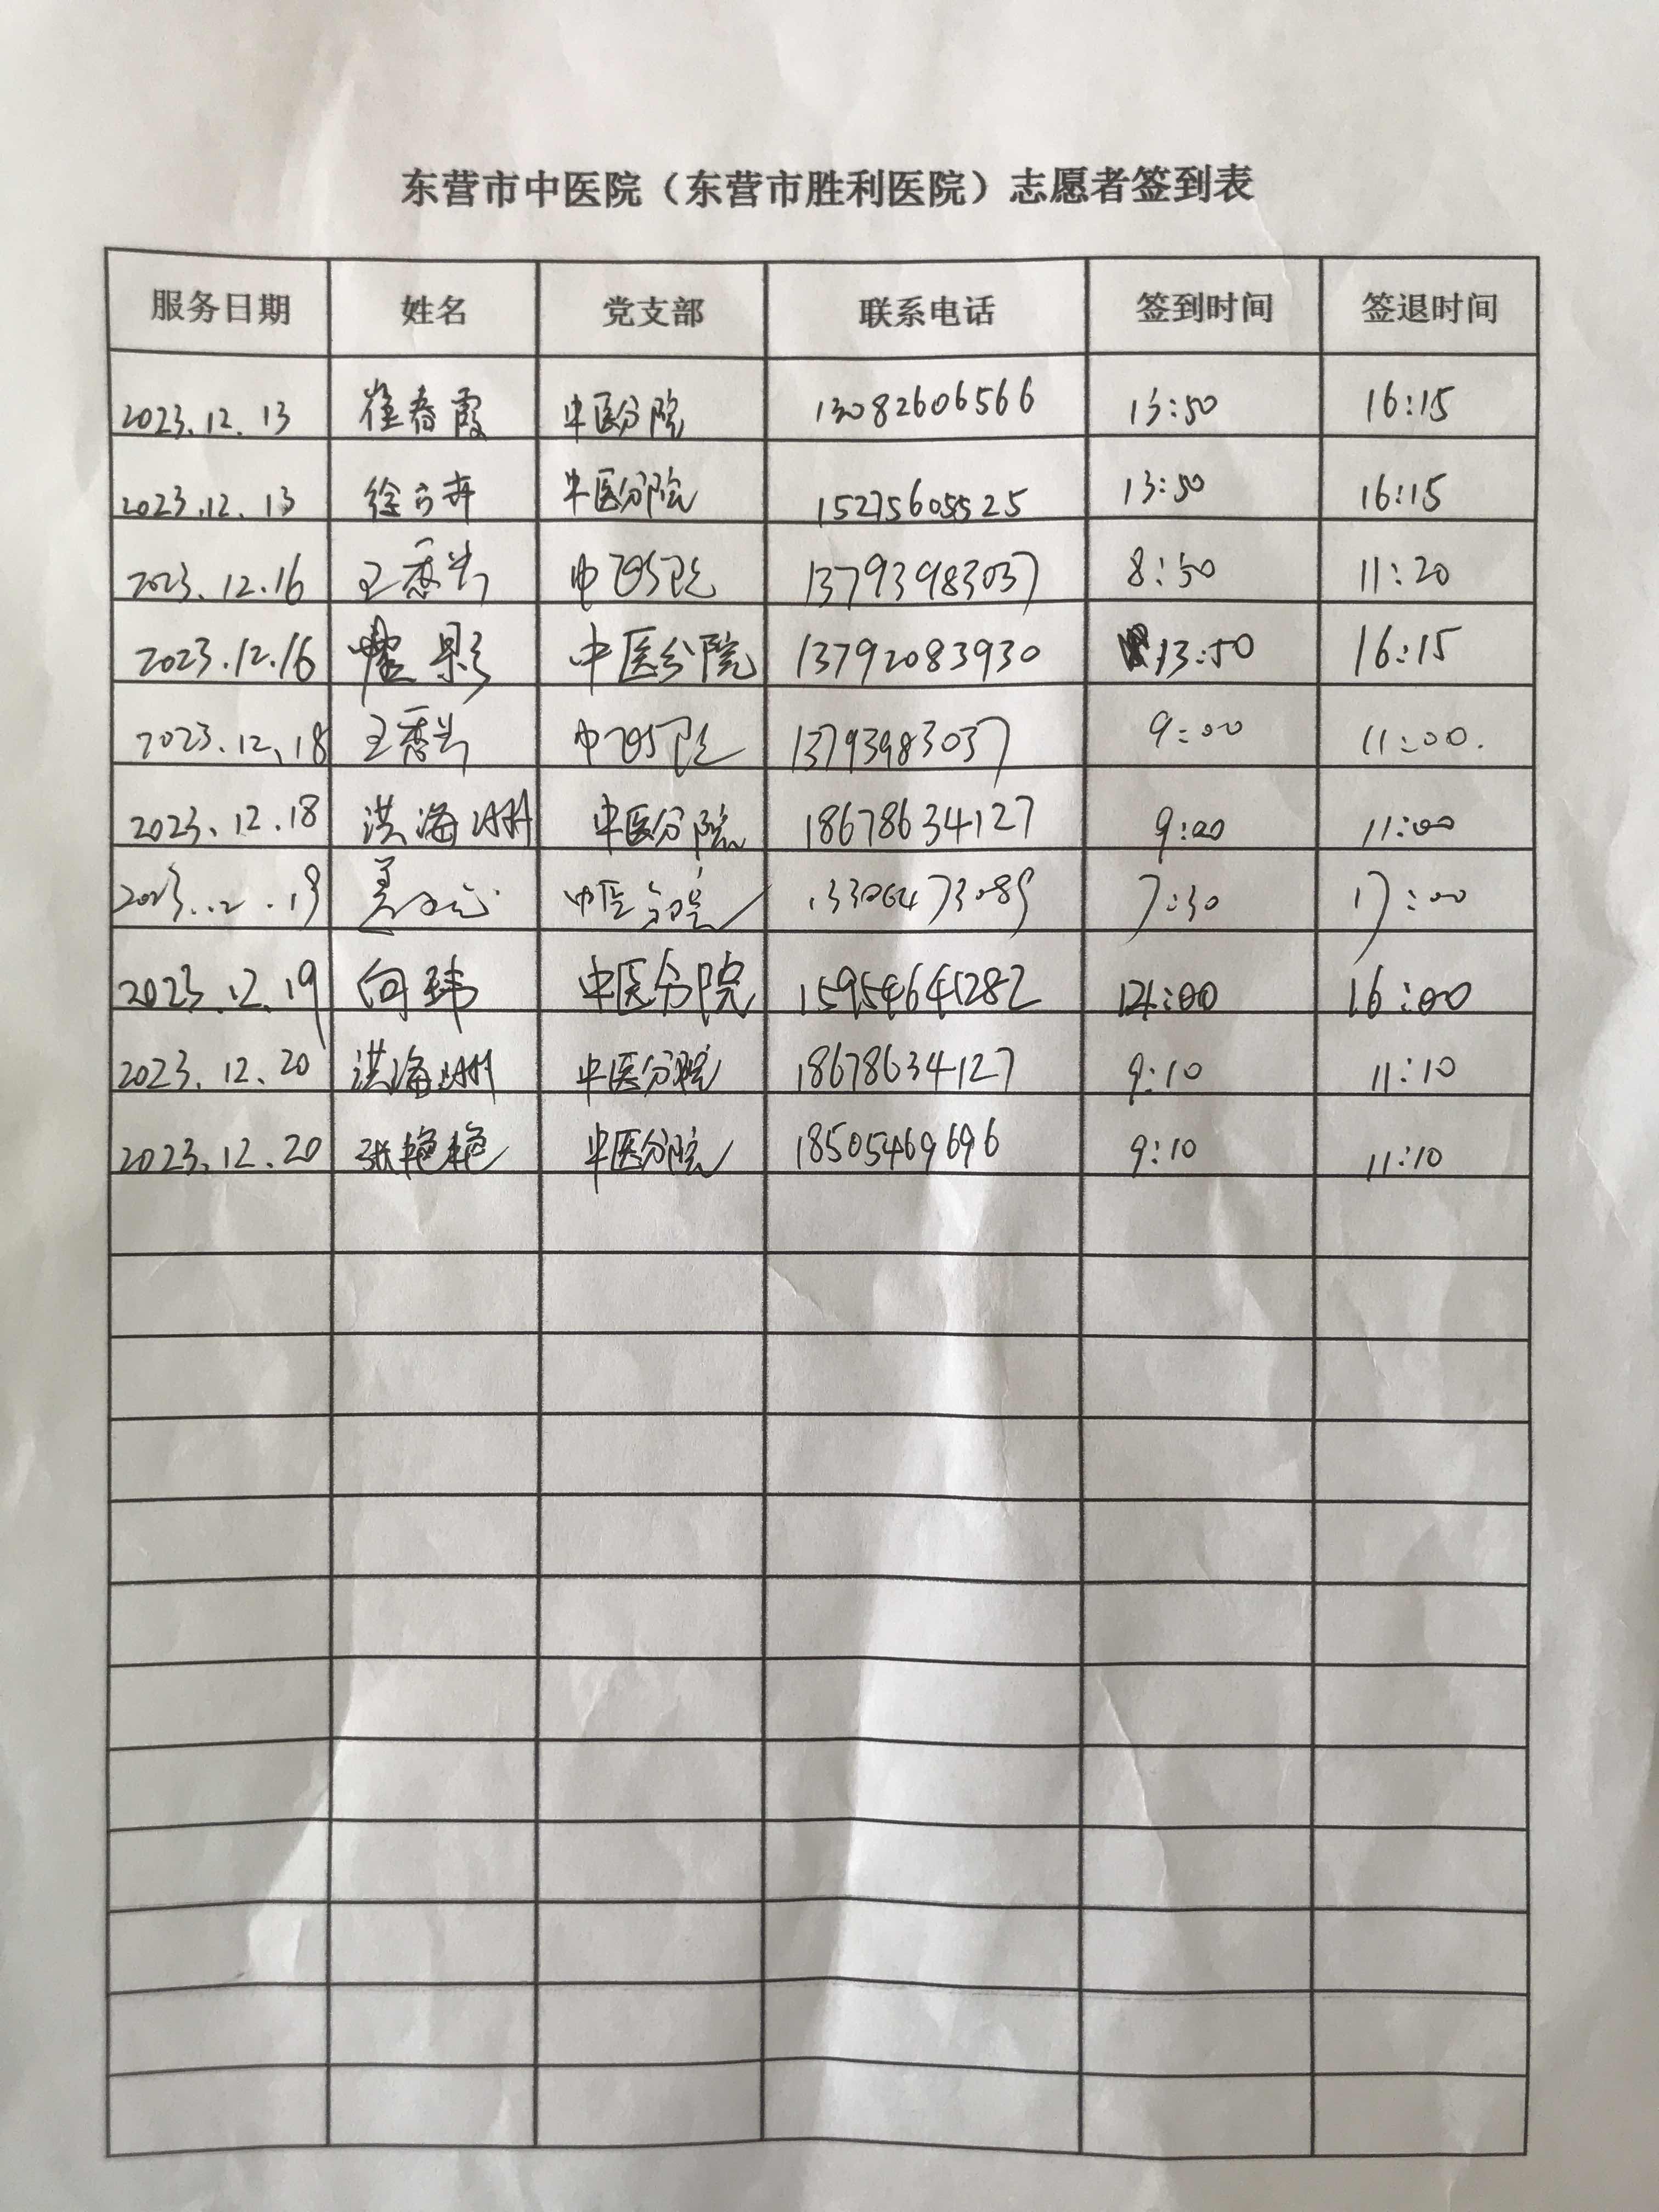 东营市中医院（东营市胜利医院）志愿者签到表
服务日期 姓名 党支部 联系电话 签到时间 签退时间
2023.12.13 崔春霞 中医分院 13082606566 13:50 16:15
2023.12.13 徐 中医分院 15275605525 13:50 16:15
2023.12.16 王秀兰 中医分院 13793983037 8:50 11:20
2023.12.16 影 中医分院 13792083930 13:50 16:15
2023.12.18 王秀兰 中医分院 13793983037 9:00 11:00.
2023.12.18 洪海洲 中医分院 18678634127 9:00 11:00
2023.12.19 中医分院 7:30 17:00
2023.12.19 向玮 中医分院 15954641282 14:00 16:00
2023.12.20 洪海洲 中医分院 18678634127 9:10 11:10
2023.12.20 张艳艳 中医分院 18505469696 9:10 11:10